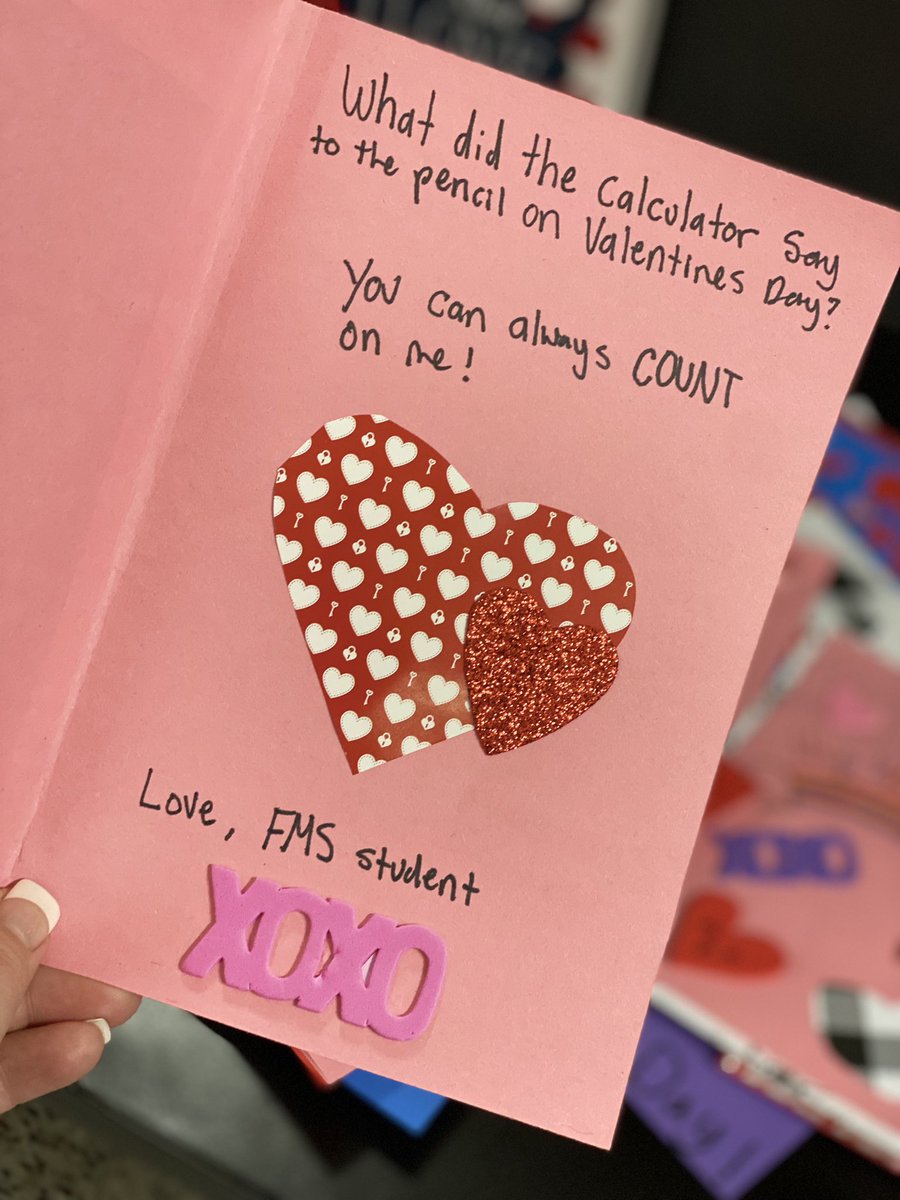 What did the Calculator Say
to the pencil on Valentines Day?
You can always COUNT
on me!
Love, FMS student
XOXO
XOXO
Day!